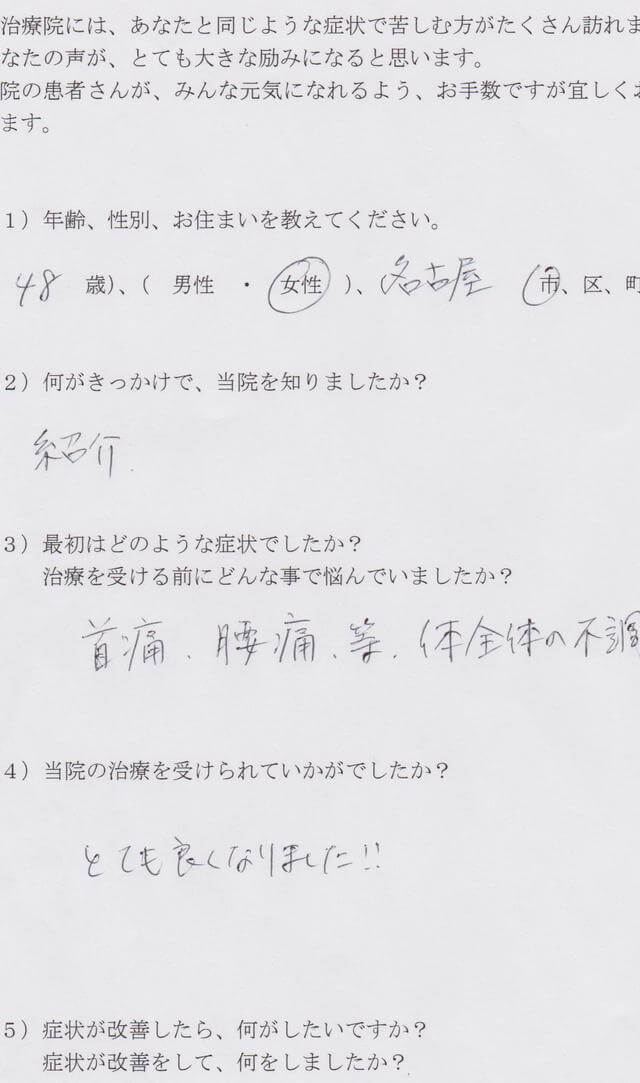 治療院には、あなたと同じような症状で苦しむ方がたくさん訪れま
なたの声が、とても大きな励みになると思います。
院の患者さんが、みんな元気になれるよう、お手数ですが宜しくお
ます。
1）年齢、性別、お住まいを教えてください。
48 歳）、（ 男性 ・ 女性 ）、名古屋 （市、区、町
2）何がきっかけで、当院を知りましたか？
紹介.
3）最初はどのような症状でしたか？
治療を受ける前にどんな事で悩んでいましたか？
首痛、腰痛、等、体全体の不調
4）当院の治療を受けられていかがでしたか？
とても良くなりました!!
5）症状が改善したら、何がしたいですか？
症状が改善をして、何をしましたか？